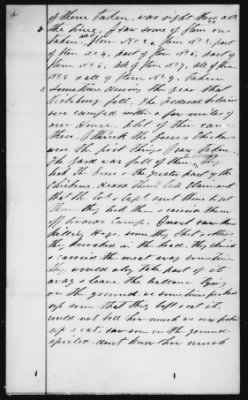 of them taken, was right there all
the time, & saw some of Item one
taken, Item No 2, Item No 3, part
of Item No 4, part of Item No 5, part of
Item No 6, all of Item No 7, all of Item
No 8 & all of Item No 9. Taken
3 Sometime during the year that
Vicksburg fell, The Federal Soldiers
were camped within a few miles of
our House. Part of their camp
there. I think the Geese & chickens
were the first things I saw taken.
The Yard was full of them, they
took the Geese & the greater part of the
chickens. Heard them tell Claimant
that the Col & Capt sent them but
them, they had them & carried them
off towards camp. I saw them
killing Hogs, some they Shot & others
they knocked in the head. they skined
& carried the meat away sometimes
they would only take part of it
away & leave the ballance lying
on the ground, we sometimes picked
up some that they left & eat it.
could not tell how much we ever picked
up & eat, saw some on the ground
spoiled. dont know how much